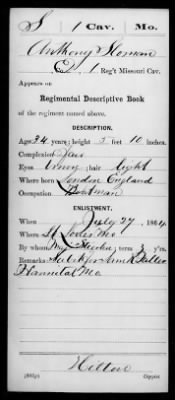 S 1 Cav. Mo.
Anthony Sloman
Co. 1 Reg't Missouri Cav.
Appears on
Regimental Descriptive Book
of the regiment named above.
DESCRIPTION.
Age 34 years; height 5 feet 10 inches.
Complexion Fair
Eyes Grey; hair Light
Where born London England
Occupation Boatman
ENLISTMENT.
When July 27, 1864.
Where St Louis Mo.
By whom ; term 3 y'rs.
Remarks
Hannibal Mo
Copyist